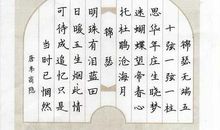 锦瑟无端五
十弦一弦一柱
思华年庄生晓梦
迷蝴蝶望帝春心
托杜鹃沧海月
锦瑟
明珠有泪蓝田
日暖玉生烟此情
可待成追忆只是
当时已惘然
唐李商隐